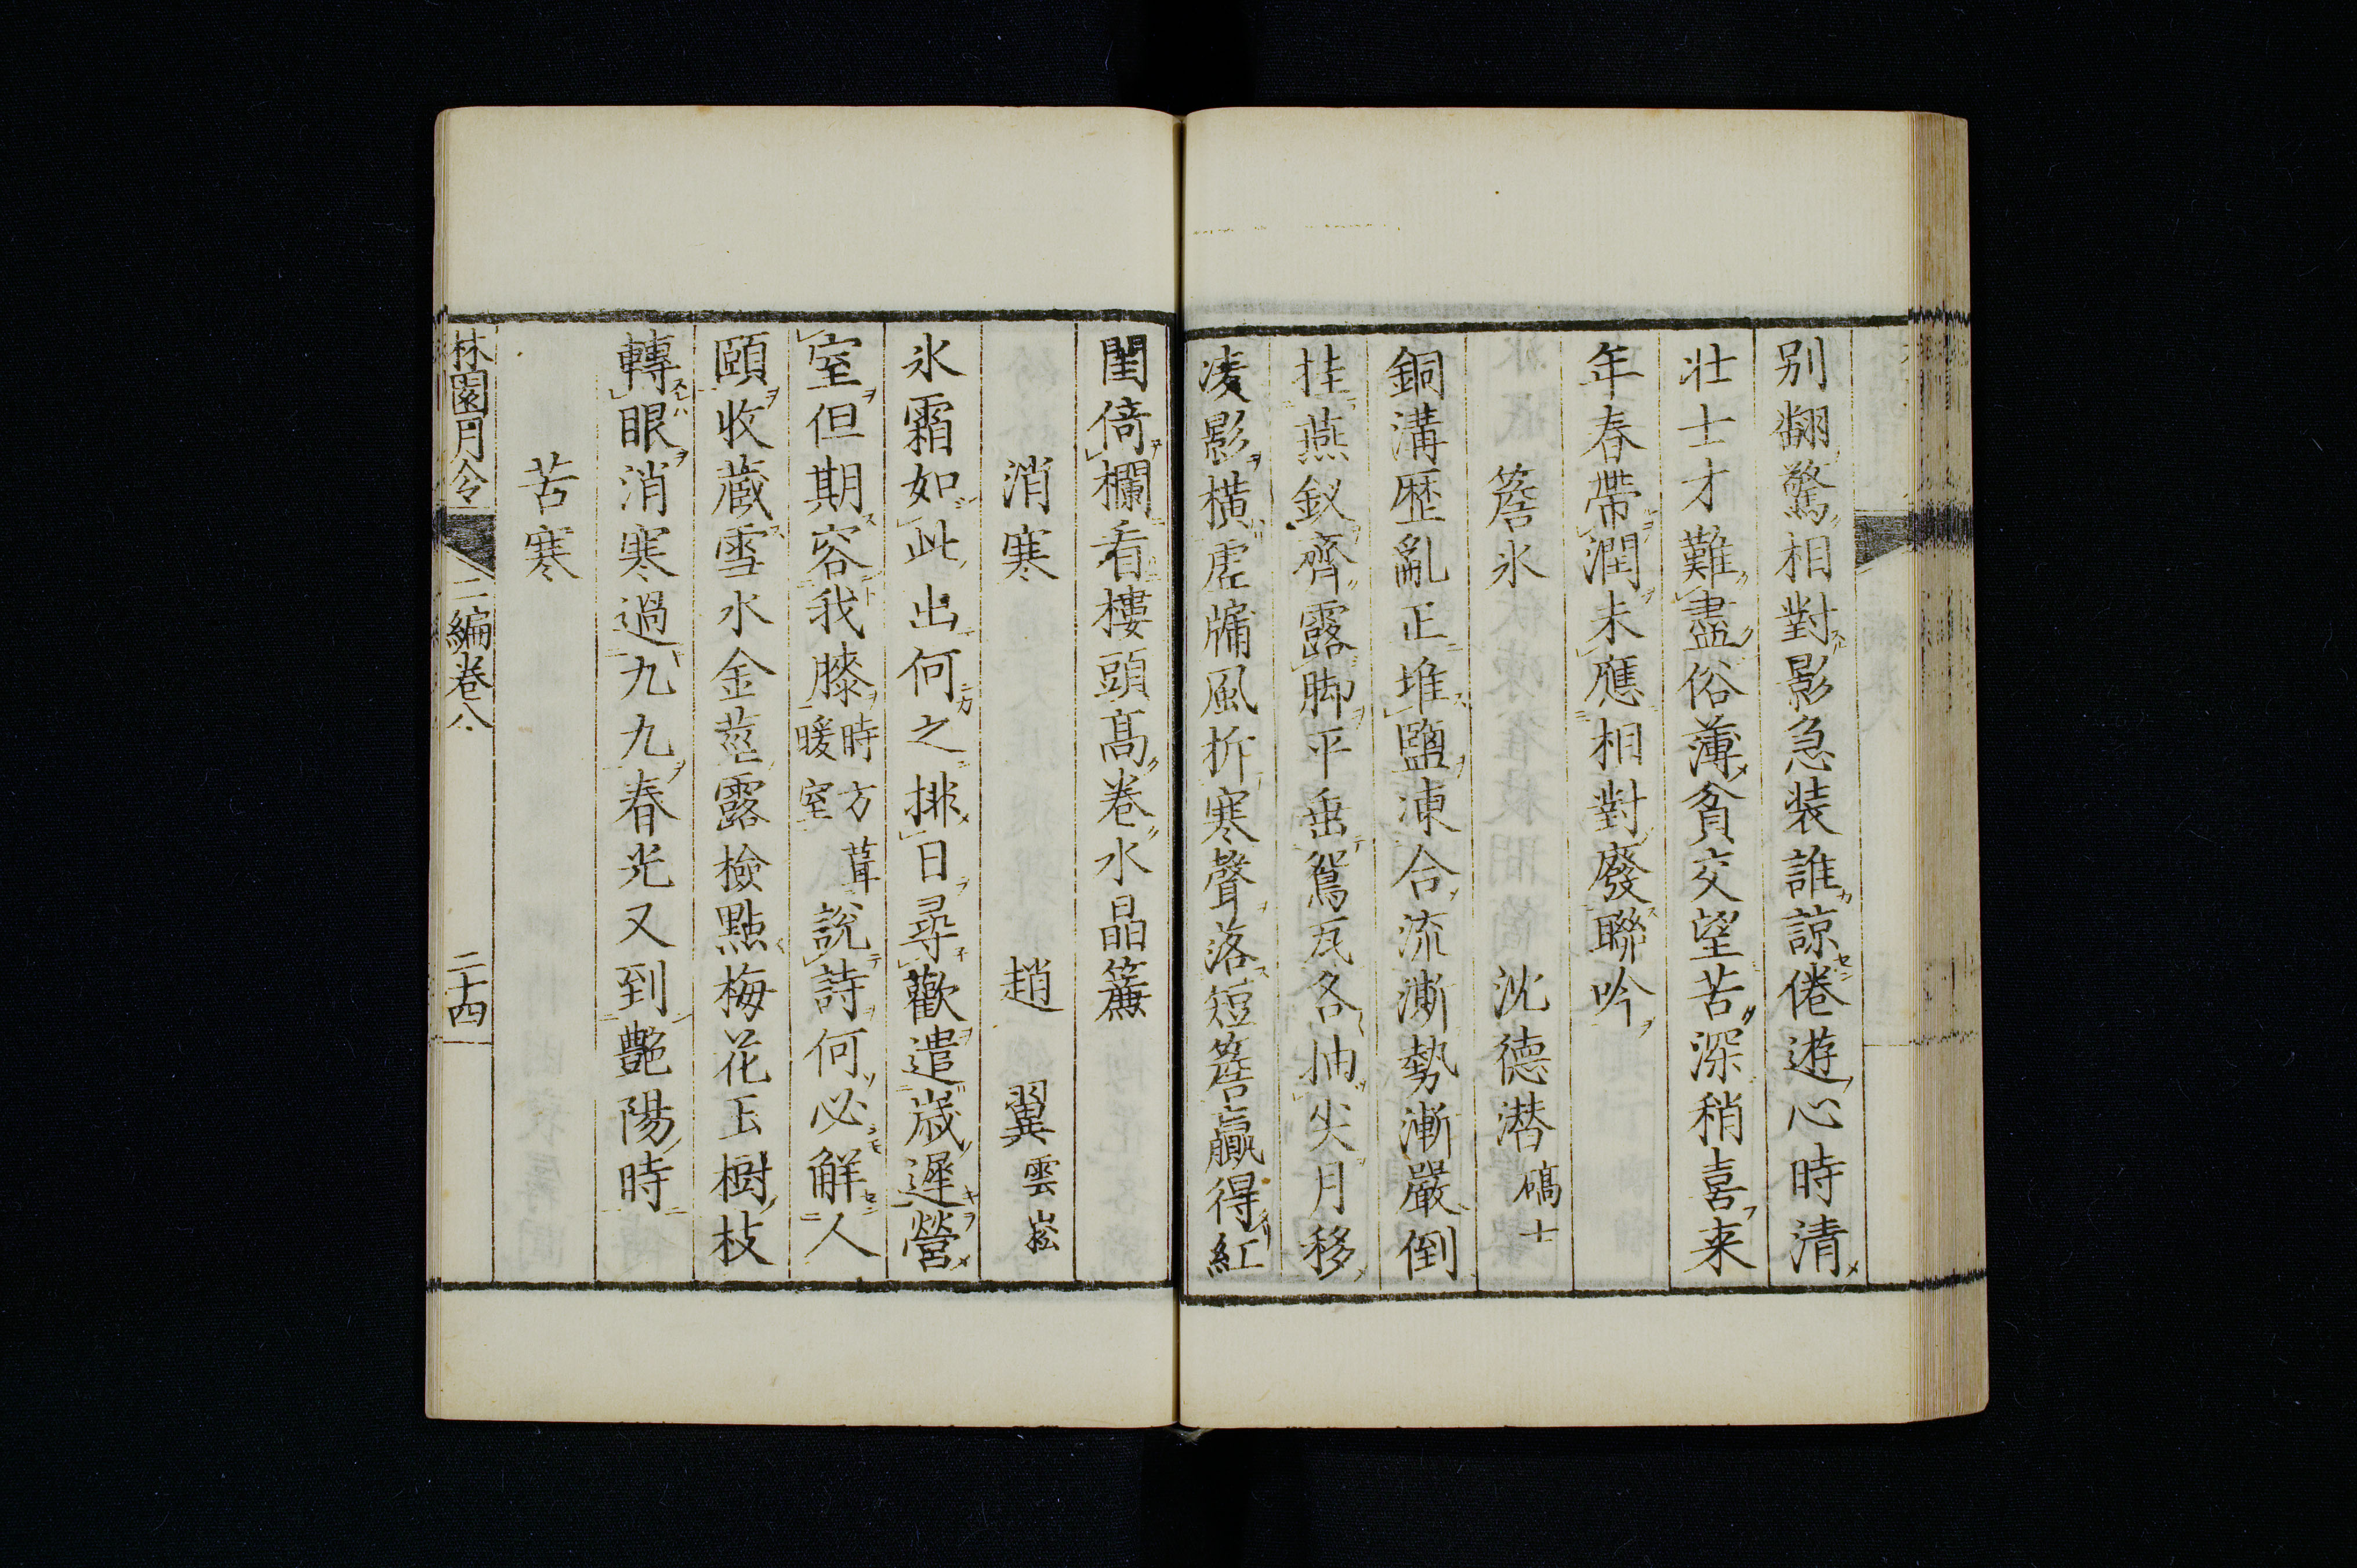 別翻驚相對影急装誰諒倦遊心時清
壮士才難盡俗薄貧交望苦深稍喜来
年春帶潤未應相對廢聯吟
簷氷 沈德潜 碻士
銅溝歴亂正堆鹽凍合流澌勢漸嚴倒
挂燕釵齊露脚平垂鴛瓦各抽尖月移
凌影橫虛牖風折寒聲落短簷贏得紅
閨倚欄看樓頭髙卷水晶簾
消寒 趙翼 雲崧
氷霜如此出何之排日尋歡遣歳遲營
室但期容我膝時方葺暖室說詩何必解人
頤收藏雪水金莖露檢點梅花玉樹枝
轉眼消寒過九九春光又到艷陽時
苦寒
林園月令 二編卷八 二十四